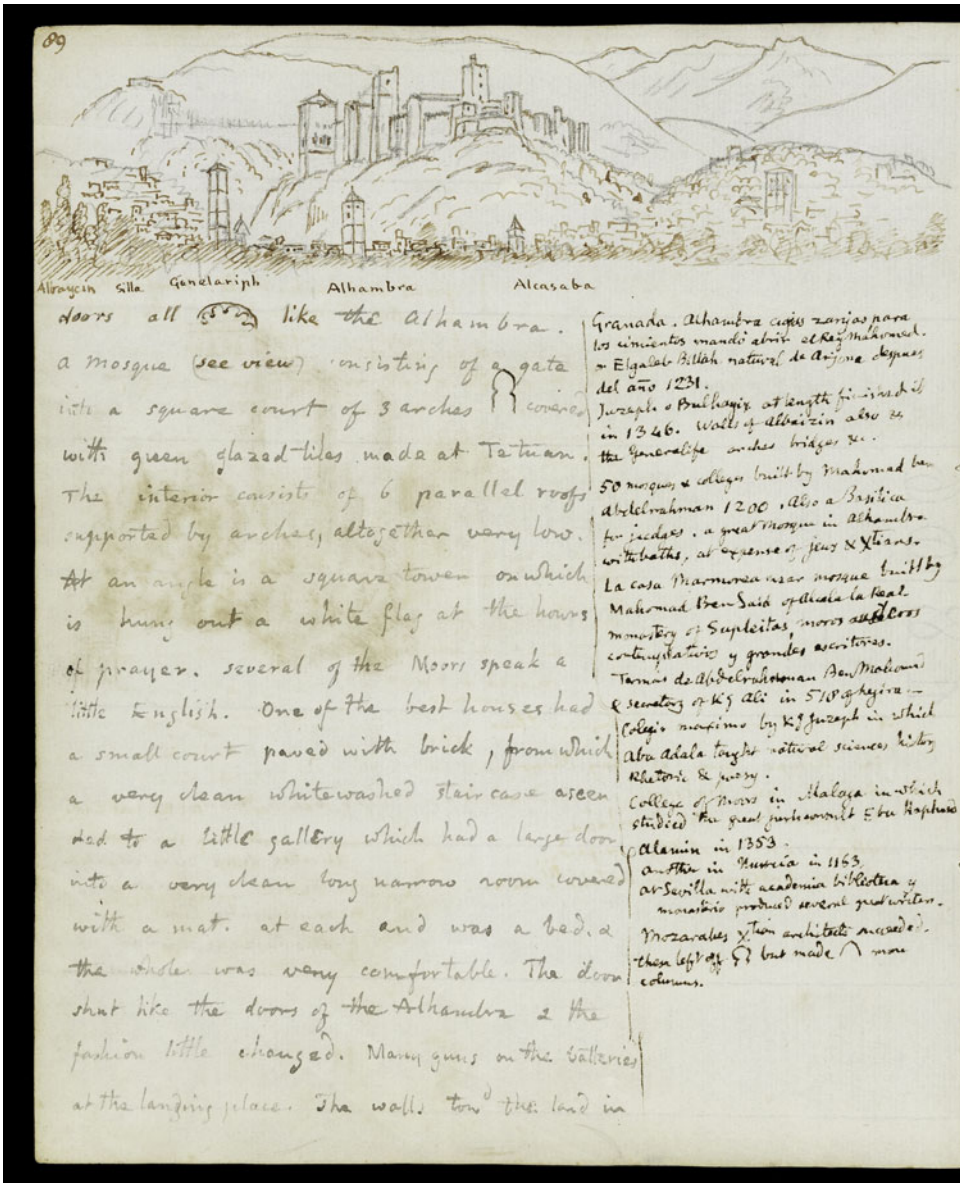 89
Albaycin Silla Genelariph Alhambra Alcasaba
doors all like the Alhambra.
a mosque (see view) consisting of a gate
into a square court of 3 arches covered
with green glazed tiles made at Tetuan.
The interior consists of 6 parallel roofs
supported by arches, altogether very low.
At an angle is a square tower on which
is hung out a white flag at the hours
of prayer. several of the Moors speak a
little English. One of the best houses had
a small court paved with brick, from which
a very clean whitewashed staircase ascen
ded to a little gallery which had a large door
into a very clean long narrow room covered
with a mat. at each end was a bed. &
the whole was very comfortable. The door
shut like the doors of the Alhambra & the
fashion little changed. Many guns on the batteries
at the landing place. The walls towd the land in
Granada. Alhambra cuyas zanjas para
los cimientos mandó abrir el Rey Mahomed.
Elgaleb Billah natural de Arjona despues
del año 1231.
Juzeph o Bulhagix at length finished it
in 1346. Walls of Albaizin also &
the Generalife arches bridges &c.
50 mosques & colleges built by Mahomad ben
Abdelrahman 1200. Also a Basilica
for juezes. a great Mosque in Alhambra
with baths, at expense of jews & Xtians.
La casa Marmorea mosque built by
Mahomad Ben Said of Alcala la Real
monastery of moros
contemplativos y grandes escritores.
de Abdelrahman Ben Mahomd
secretary of Kg Ali in 518 of hegira
Colegio maximo by Kg Juzeph in which
Abu Adala taught natural sciences history
Rhetoric & poesy.
College of Moors in Malaga in which
studied the great jurisconsult Ebu
Alamin in 1353.
another in Murcia in 1183
at Sevilla with academia biblioteca y
monasterio produced several great writers.
Mozarabes Xtian architects succeeded.
these left off but made more
columns.